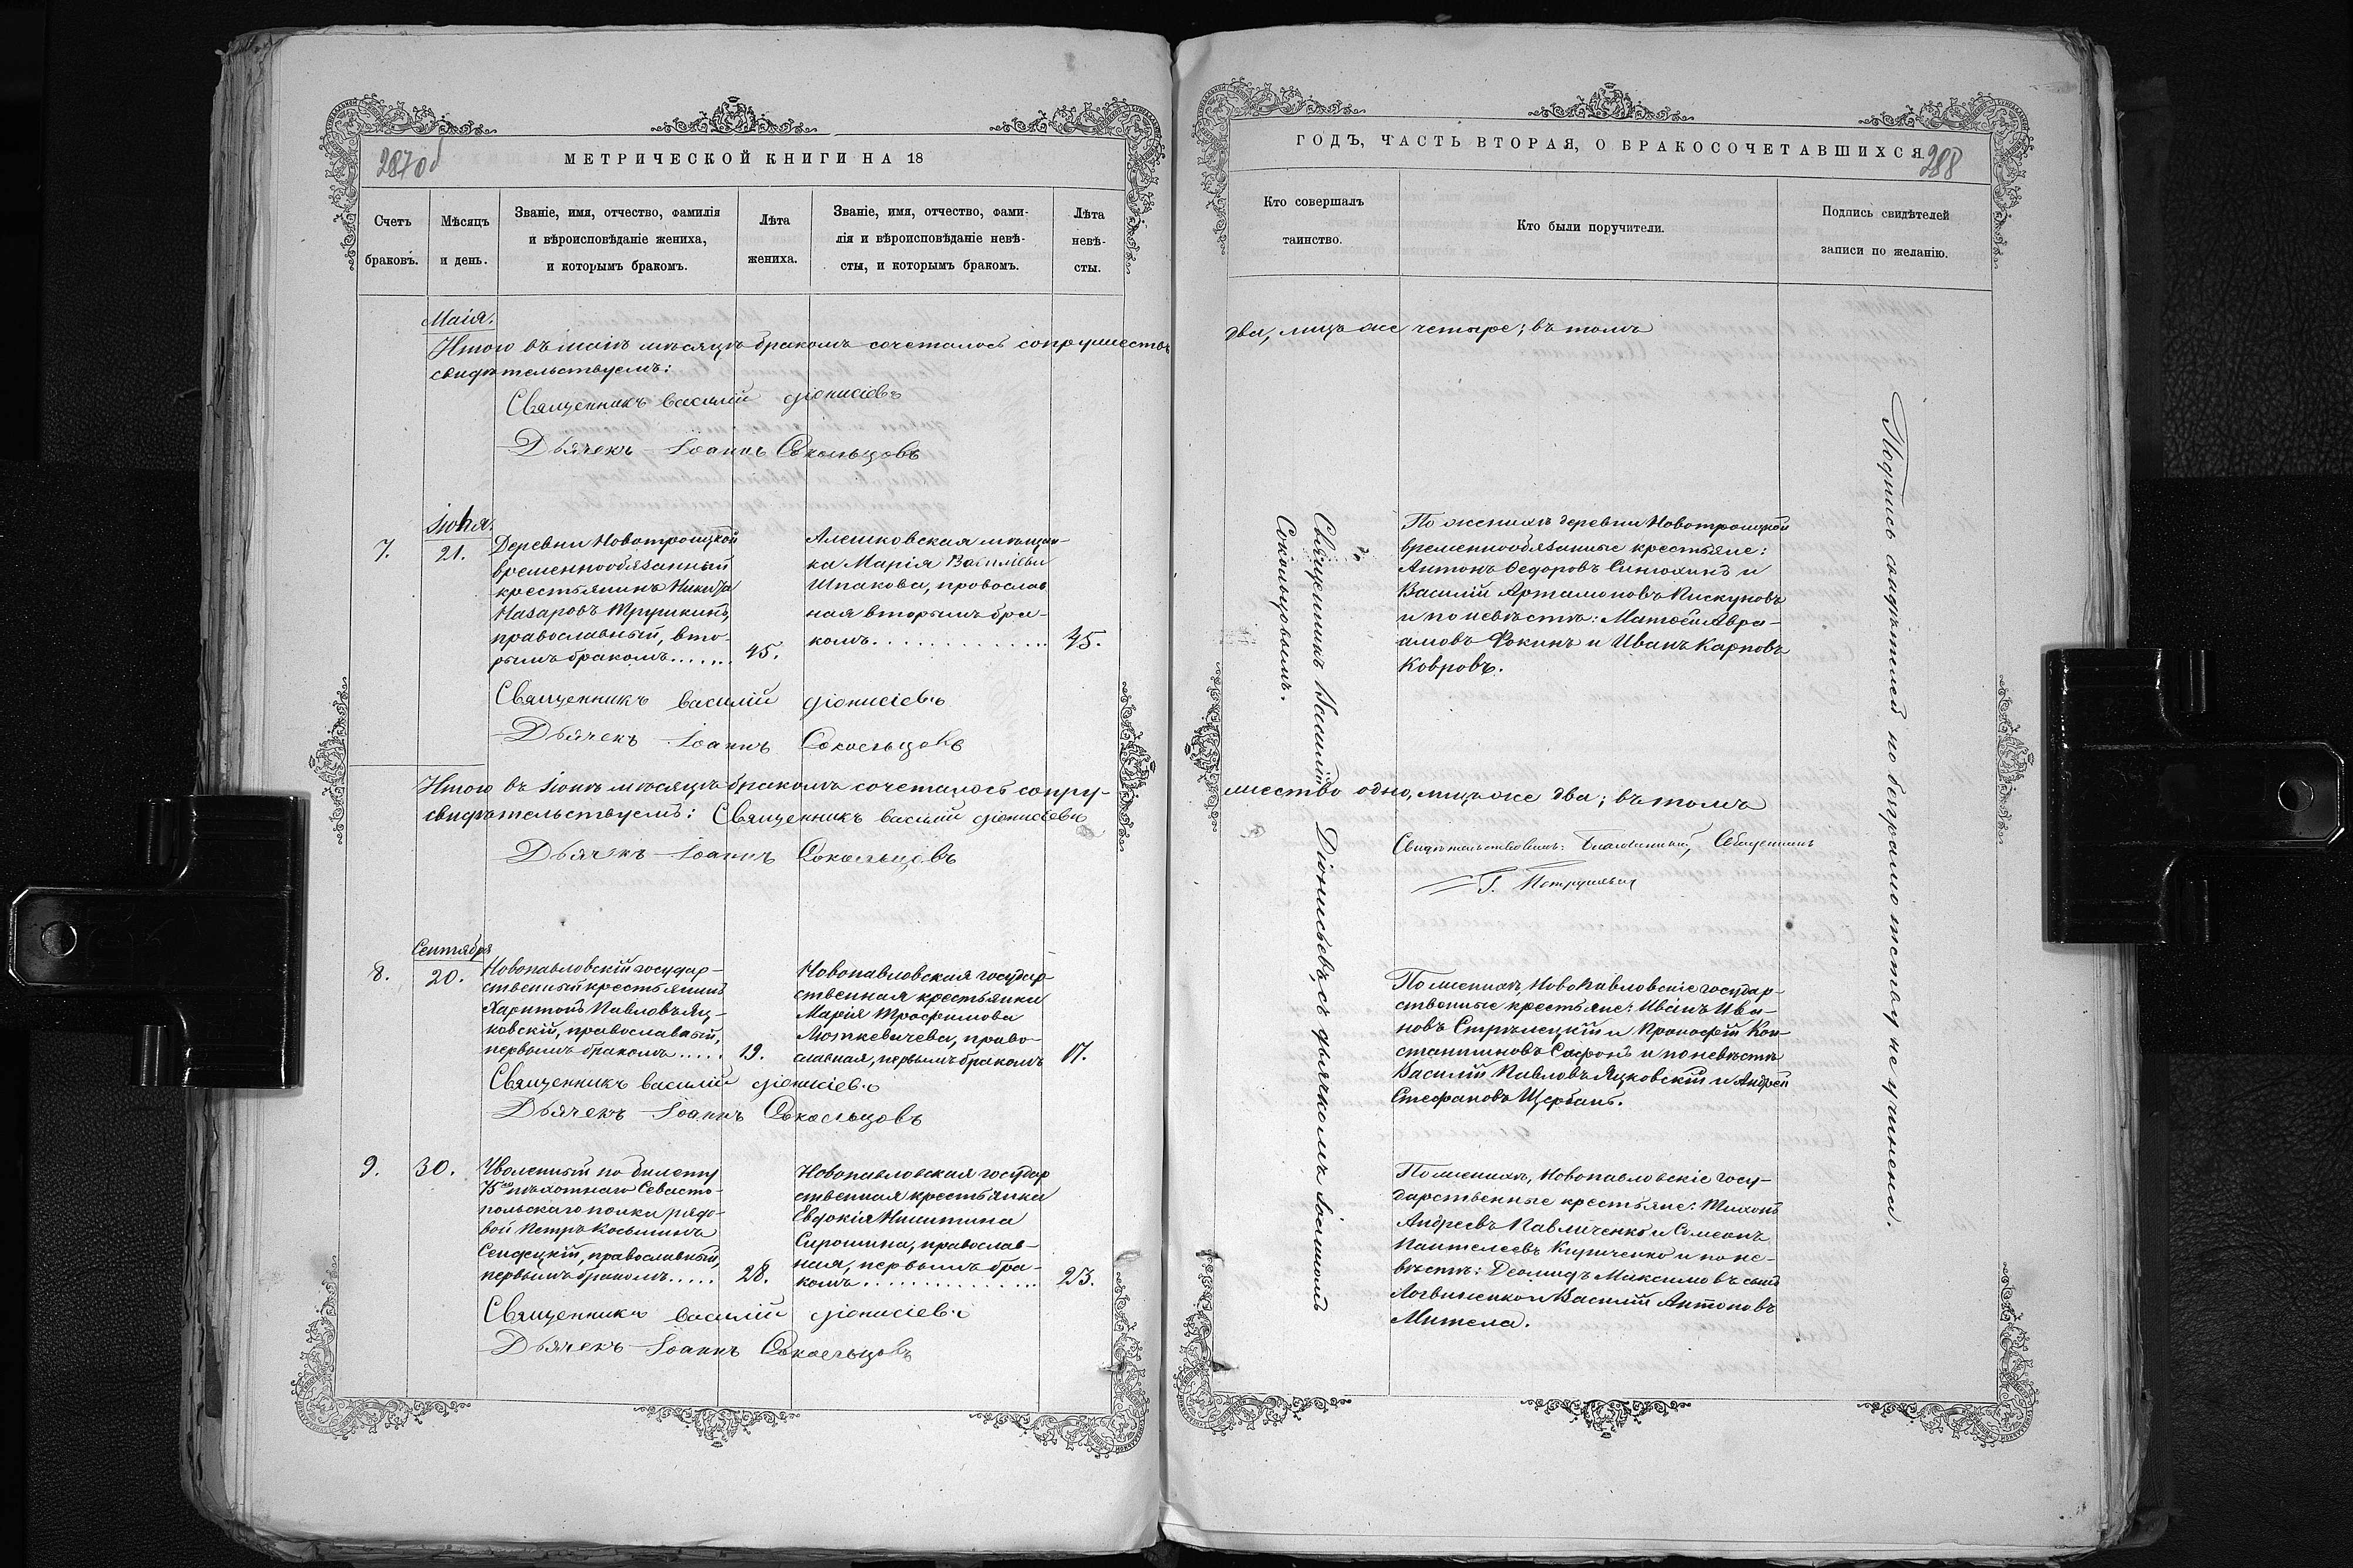 287 об
МЕТРИЧЕСКОЙ КНИГИ НА 18
Счетъ
браковъ.
Мѣсяцъ
и день.
Званіе, имя, отчество, фамилія
и вѣроисповѣданіе жениха,
и которымъ бракомъ.
Лѣта
жениха.
Званіе, имя, отчество, фами-
лія и вѣроисповѣданіе невѣ-
сты, и которымъ бракомъ.
Лѣта
невѣ-
сты.
Маія.
Итого въ маіѣ мѣсяцѣ бракомъ сочеталось супружествъ
свидѣтельствуемъ:
Священникъ Василій Діонисіевъ
Дьячекъ Іоаннъ Сокольцовъ
Іюня.
7.
21.
Деревни Новотроицкой
временнообязанный
крестьянинъ Никита
Назаровъ Трушкинъ,
православный, вто-
рымъ бракомъ......
45.
Алешковская мѣщан-
ка Марія Василіева
Шпакова, православ
ная вторымъ бра-
комъ.............
45.
Священникъ Василій Діонисіевъ
Дьячекъ Іоаннъ Сокольцовъ
Итого въ Іюнѣ мѣсяцѣ бракомъ сочеталось супру-
свидѣтельствуемъ: Священникъ Василій Діонисіевъ
Дьячекъ Іоаннъ Сокольцовъ
Сентября
8.
20.
Новопавловскій государ-
ственный крестьянинъ
Харитонъ Павловъ Яц-
ковскій, православный,
первымъ бракомъ.....
19.
Новопавловская государ-
ственная крестьянка
Марія Трофимова
Люткевичева, право-
славная, первымъ бракомъ
17.
Священникъ Василій Діонисіевъ
Дьячекъ Іоаннъ Сокольцовъ
9.
30.
Уволенный по билету
75го пѣхотнаго Севасто-
польскаго полка рядо-
вой Петръ Косьминъ
православный,
первымъ бракомъ.....
28.
Новопавловская государ
ственная крестьянка
Евдокія Никитина
Сирошина, православ-
ная, первымъ бра-
комъ...............
23.
Священникъ Василій Діонисіевъ
Дьячекъ Іоаннъ Сокольцовъ
ГОДЪ, ЧАСТЬ ВТОРАЯ, О БРАКОСОЧЕТАВШИХСЯ.
288
Кто совершалъ
таинство.
Кто были поручители.
Подпись свидѣтелей
записи по желанію.
два, лицъ же четыре; въ томъ
Священникъ Василій Діонисьевъ, съ дьячкомъ Іоанномъ
Сокольцовымъ.
По женихѣ деревни Новотроицкой
временнообязанные крестьяне:
Антонъ Ѳедоровъ Синюхинъ и
Василій Артамоновъ Пискуновъ
и по невѣстѣ: Матѳей Авра-
амовъ Фокинъ и Иванъ Карповъ
Ковровъ.
жество одно, лицъ же два; въ томъ
Свидѣтельствовалъ: Благочинный, Священникъ
Г. Петрушевъ
По женихѣ, Новопавловскіе государ-
ственные крестьяне: Иванъ Ива-
новъ Стрѣлецкій и Прокофій Кон-
стантиновъ Сафронъ и по невѣстѣ
Василій Павловъ Яцковскій и Андрей
Стефановъ Щербань.
По женихѣ, Новопавловскіе госу-
дарственные крестьяне: Тихонъ
Андреевъ Павличенко и Симеонъ
Пантелеевъ Кириченко и по не-
вѣстѣ: Деомидъ Максимовъ сынъ
Логвиненко и Василій Антоновъ
Мител.
Подпись свидѣтелей по безграмотству не учинена.